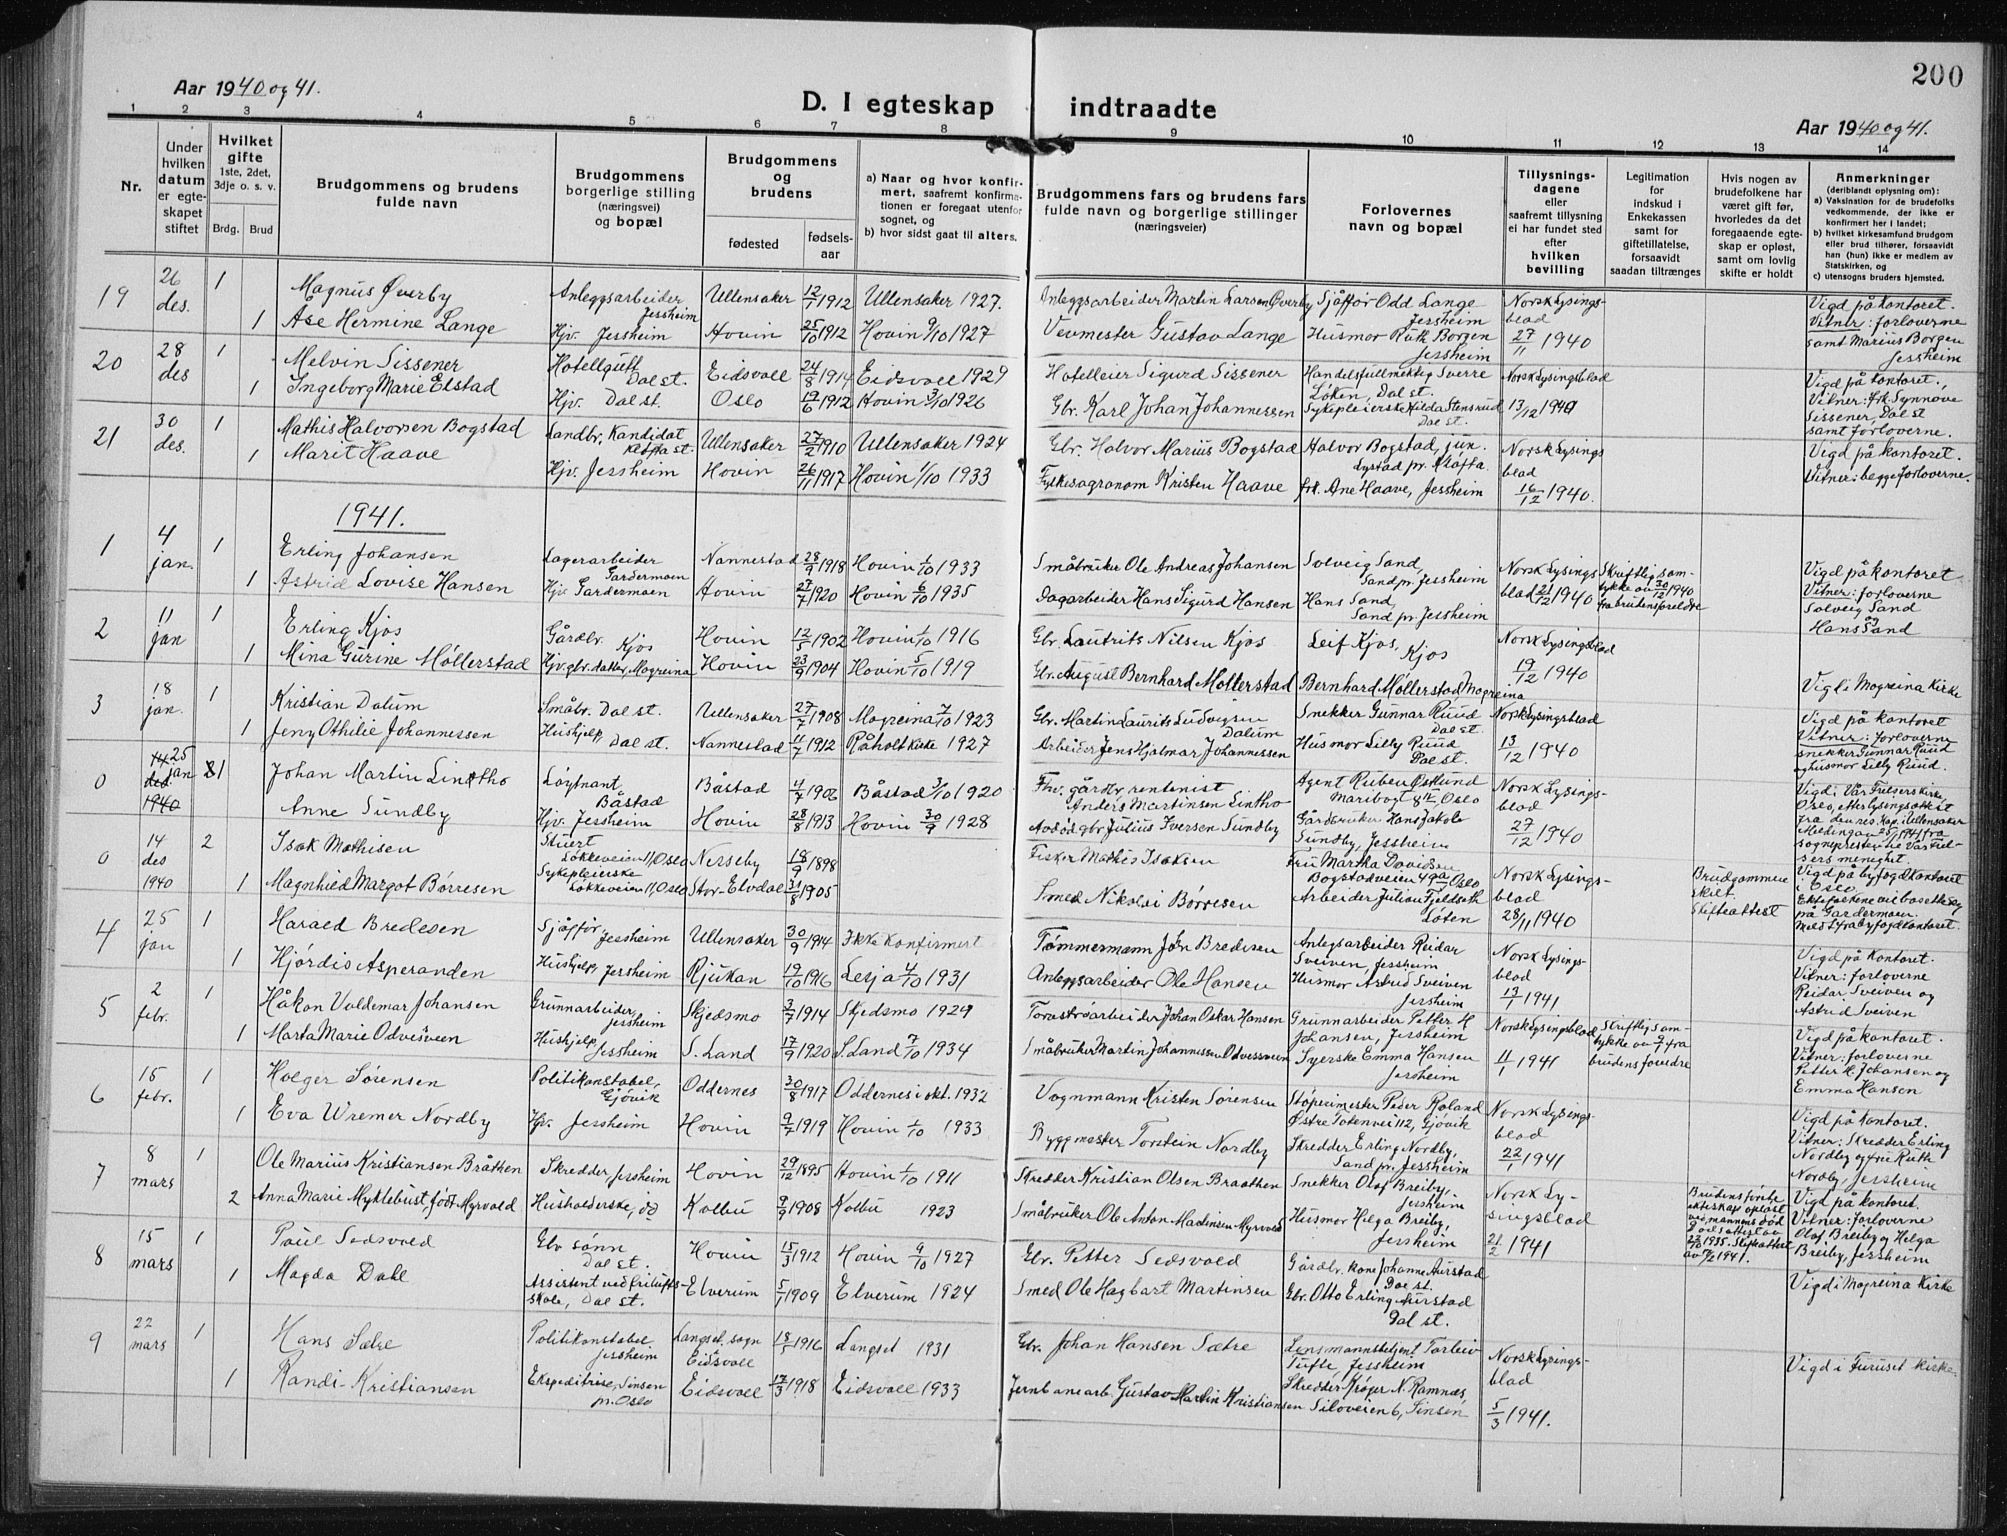 200
Aar 1940 og 41.
D. I egteskap indtraadte
Aar 1940 og 41.
1 2 3 4 5 6 7 8 9 10 11 12 13 14
Nr.
Under hvilken datum er egteskapet stiftet
Hvilket gifte 1ste, 2det, 3dje o. s. v.
Brdg. Brud
Brudgommens og brudens fulde navn
Brudgommens borgerlige stilling (næringsvei) og bopæl
Brudgommens og brudens
fødested
fødsels-aar
a) Naar og hvor konfirmert, saafremt konfirmationen er foregaat utenfor sognet, og
b) hvor sidst gaat til alters.
Brudgommens fars og brudens fars fulde navn og borgerlige stillinger (næringsveier)
Forlovernes navn og bopæl
Tillysnings-dagene eller saafremt tillysning ei har fundet sted efter hvilken bevilling
Legitimation for indskud i Enkekassen samt for giftetillatelse, forsaavidt saadan tiltrænges
Hvis nogen av brudefolkene har været gift før, hvorledes da det foregaaende egteskap er opløst, samt om lovlig skifte er holdt
Anmerkninger (deriblandt oplysning om):
a) Vaksination for de brudefolks vedkommende, der ikke er konfirmert her i landet;
b) hvilket kirkesamfund brudgom eller brud tilhører, forsaavidt han (hun) ikke er medlem av Statskirken, og
c) utensogns bruders hjemsted.
19 26 des. 1 Magnus Øverby Anleggsarbeider Jessheim Ullensaker 12/1 1912 Ullensaker 1927. Anleggsarbeider Martin Larsen Øverby Sjåffør Odd Lange Jessheim Norsk Lysings-blad 27/11 1940 Vigd på kontoret. Vitner: forloverne samt Marius Borgen Jessheim
1 Åse Hermine Lange Hjv. Jessheim Hovin 25/10 1912 Hovin 9/10 1927 Vevmester Gustav Lange Husmor Ruth Borgen Jessheim
20 28 des 1 Melvin Sissener Hotellgutt Dal st. Eidsvoll 24/8 1914 Eidsvoll 1929 Hotelleier Sigurd Sissener Handelsfullmektig Sverre Løken, Dal st. Norsk Lysingsblad 13/12 1940 Vigd på kontoret., Vitner: frk. Synnøve Sissener, Dal st samt forloverne.
1 Ingeborg Marie Elstad Hjv. Dal st. Oslo 19/6 1912 Hovin 3/10 1926 Gbr. Karl Johan Johannessen Sykepleierske Hilda Stensrud Dal st.
21 30 des. 1 Mathis Halvorsen Bogstad Landbr. Kandidat Kløfta st. Ullensaker 27/2 1910 Ullensaker 1924 Gbr. Halvor Marius Bogstad Halvor Bogstad, jun. Lystad pr. Kløfta Norsk Lysings blad 16/12 1940. Vigd på kontoret. Vitner: begge forloverne.
1 Marit Haave Hjv. Jessheim Hovin 26/11 1917 Hovin 1/10 1933 Fylkesagronom Kristen Haave frk. Ane Haave, Jessheim
1941.
1 4 jan. 1 Erling Johansen Lagerarbeider Gardermoen Nannestad 28/9 1918 Hovin 1/10 1933 Småbruker Ole Andreas Johansen Solveig Sand, Sand pr. Jessheim Norsk Lysings blad 21/12 1940 Skriftlig samtykke av 30/12 1940 fra brudens foreldre Vigd på kontoret Vitner: forloverne Solveig Sand og Hans Sand
1 Astrid Lovise Hansen Hjv. Gardermoen Hovin 27/7 1920 Hovin 6/10 1935 Dagarbeider Hans Sigurd Hansen Hans Sand, Sand pr. Jessheim
2 11 jan 1 Erling Kjos Gårdbr. Kjos Hovin 12/5 1902 Hovin 1/10 1916 Gbr. Lautrits Nilsen Kjos Leif Kjos, Kjos Norsk Lysingsblad 19/12 1940 Vigd i Mogreina Kirke
1 Mina Gurine Møllerstad Hjv. gbr. datter, Mogreina Hovin 23/9 1904 Hovin 5/10 1919 Gbr. August Bernhard Møllerstad Bernhard Møllerstad Mogreina
3 18 jan. 1 Kristian Dalum Småbr. Dal st. Ullensaker 27/7 1908 Mogreina 7/10 1923 Gbr. Martin Laurits Ludvigsen Dalum Snekker Gunnar Ruud Dal st. Norsk Lysingsblad 13/12 1940 Vigd på kontoret Vitner: forloverne snekker Gunnar Ruud og husmor Lilly Ruud.
1 Jeny Othilie Johannessen Hushjelp, Dal st. Nannestad 11/7 1912 Råholt Kirke 1927 Arbeider Jens Hjalmar Johannessen Husmor Lilly Ruud Dal st.
0 14 des 1940 25 jan 1 Johan Martin Lintho Løytnant, Båstad Båstad 4/7 1906 Båstad 3/10 1920 Fhv. gårdbr. rentenist Anders Martinsen Lintho Agent Ruben Østlund Maribogt 8 II, Oslo Norsk Lysings-blad 27/12 1940 Vigd i Vår Frelsers Kirke, Oslo, etter lysingsattest fra den res. kap. i Ullensaker Melding av 25/1 1941 fra sognepresten i Vår Frelsers menighet.
Anne Sundby Hjv. Jessheim Hovin 28/8 1913 Hovin 30/9 1928 Avdød gbr. Julius Iversen Sundby Gårdbruker Hans Jakob Sundby, Jessheim
0 14 des 1940 2 Isak Mathisen Stuert Løkkeveien 11, Oslo Nesseby 18/9 1898 Fisker Mathis Isaksen Fru Martha Davidsen Bogstadveien 49a, Oslo Norsk Lysings-blad 28/11 1940 Brudgommen skilt Skifteattest Vigd på byfogdkontoret i Oslo. Ektefolkene vil bosette seg på Gardermoen. Meld. fra byfogdkontoret.
1 Magnhild Margot Børresen Sykepleierske Løkkeveien 11, Oslo Stor-Elvdal 31/8 1905 Smed Nikolai Børresen Arbeider Julian Fjeldseth Løten
4 25 jan 1 Harald Bredesen Sjåffør, Jessheim Ullensaker 30/9 1914 Ikke Konfirmert Tømmermann Jon Bredesen Anlegsarbeider Reidar Sveiven, Jessheim Norsk Lysings-blad 13/1 1941 Vigd på kontoret. Vitner: forloverne Reidar Sveiven og Astrid Sveiven
1 Hjørdis Asperanden Hushjelp, Jessheim Rjukan 19/10 1916 Lesja 4/10 1931 Anleggsarbeider Ole Hansen Husmor Astrid Sveiven Jessheim
5 2 febr. 1 Håkon Valdemar Johansen Grunnarbeider, Jessheim Skjedsmo 3/7 1914 Skjedsmo 1929 Torvstrøarbeider Johan Oskar Hansen Grunnarbeider Petter H Johansen, Jessheim Norsk Lysingsblad 11/1 1941 Skriftlig samtykke av 9/1 fra brudens foreldre Vigd på kontoret. Vitner: forloverne Petter H. Johansen og Emma Hansen
1 Marta Marie Odvesveen Hushjelp, Jessheim S. Land 17/9 1920 S. Land 7/10 1934 Småbruker Martin Johannissen Odvesveen Syerske Emma Hansen Jessheim
6 15 febr. 1 Holger Sørensen Politikonstabel, Gjøvik Oddernes 30/8 1917 Oddernes i okt. 1932 Vognmann Kristen Sørensen Støperimester Peder Roland Østre Totenvei 112, Gjøvik Norsk Lysings-blad 22/1 1941 Vigd på kontoret. Vitner: Skredder Erling Nordby og frk Ruth Nordby, Jessheim
1 Eva Wremer Nordby Hjv. Jessheim Hovin 9/7 1919 Hovin 1/10 1933 Byggmester Torstein Nordby Skredder Erling Nordby, Sand pr. Jessheim
7 8 mars 1 Ole Marius Kristiansen Bråthen Skredder, Jessheim Hovin 29/12 1895 Hovin 1/10 1911 Skredder Kristian Olsen Braathen Snekker Olaf Breiby, Jessheim Norsk Lysingsblad 21/2 1941 Brudens første ekteskap oppløst ved mannens død Vigd på kontoret. Vitner: forloverne Olaf Breiby og Helga Breiby, Jessheim
2 Anna Marie Myklebust, født Myrvold Husholderske, i d Kolbu 9/9 1908 Kolbu 1923 Småbruker Ole Anton Madinsen Myrvold Husmor Helga Breiby, Jessheim
8 15 mars 1 Paul Sedsvold Gbr sønn Dal st. Hovin 15/3 1912 Hovin 9/10 1927 Gbr. Petter Sedsvold Gårdbr. kone Johanne Aurstad Dal st. Vigd i Mogreina Kirke
1 Magda Dahl Assistent ved frilufts-skole, Dal st. Elverum 5/1 1909 Elverum 1924 Smed Ole Hagbart Martinsen Gbr. Otto Erling Aurstad Dal st.
9 22 mars 1 Hans Sætre Politikonstabel Jessheim Langset, sogn Eidsvoll 18/1 1916 Langset 1931 Gbr. Johan Hansen Sætre Lensmannsbetjent Torleiv Tufte, Jessheim Norsk Lysings-blad 5/3 1941. Vigd i Furuset Kirke
1 Randi Kristiansen Ekspeditrise, Sinsen pr. Oslo Eidsvoll 17/3 1918 Eidsvoll 1933 Jernbanearb. Gustav Martin Kristiansen Skredder Krøger N. Ramnæs Siloveien 6, Sinsen